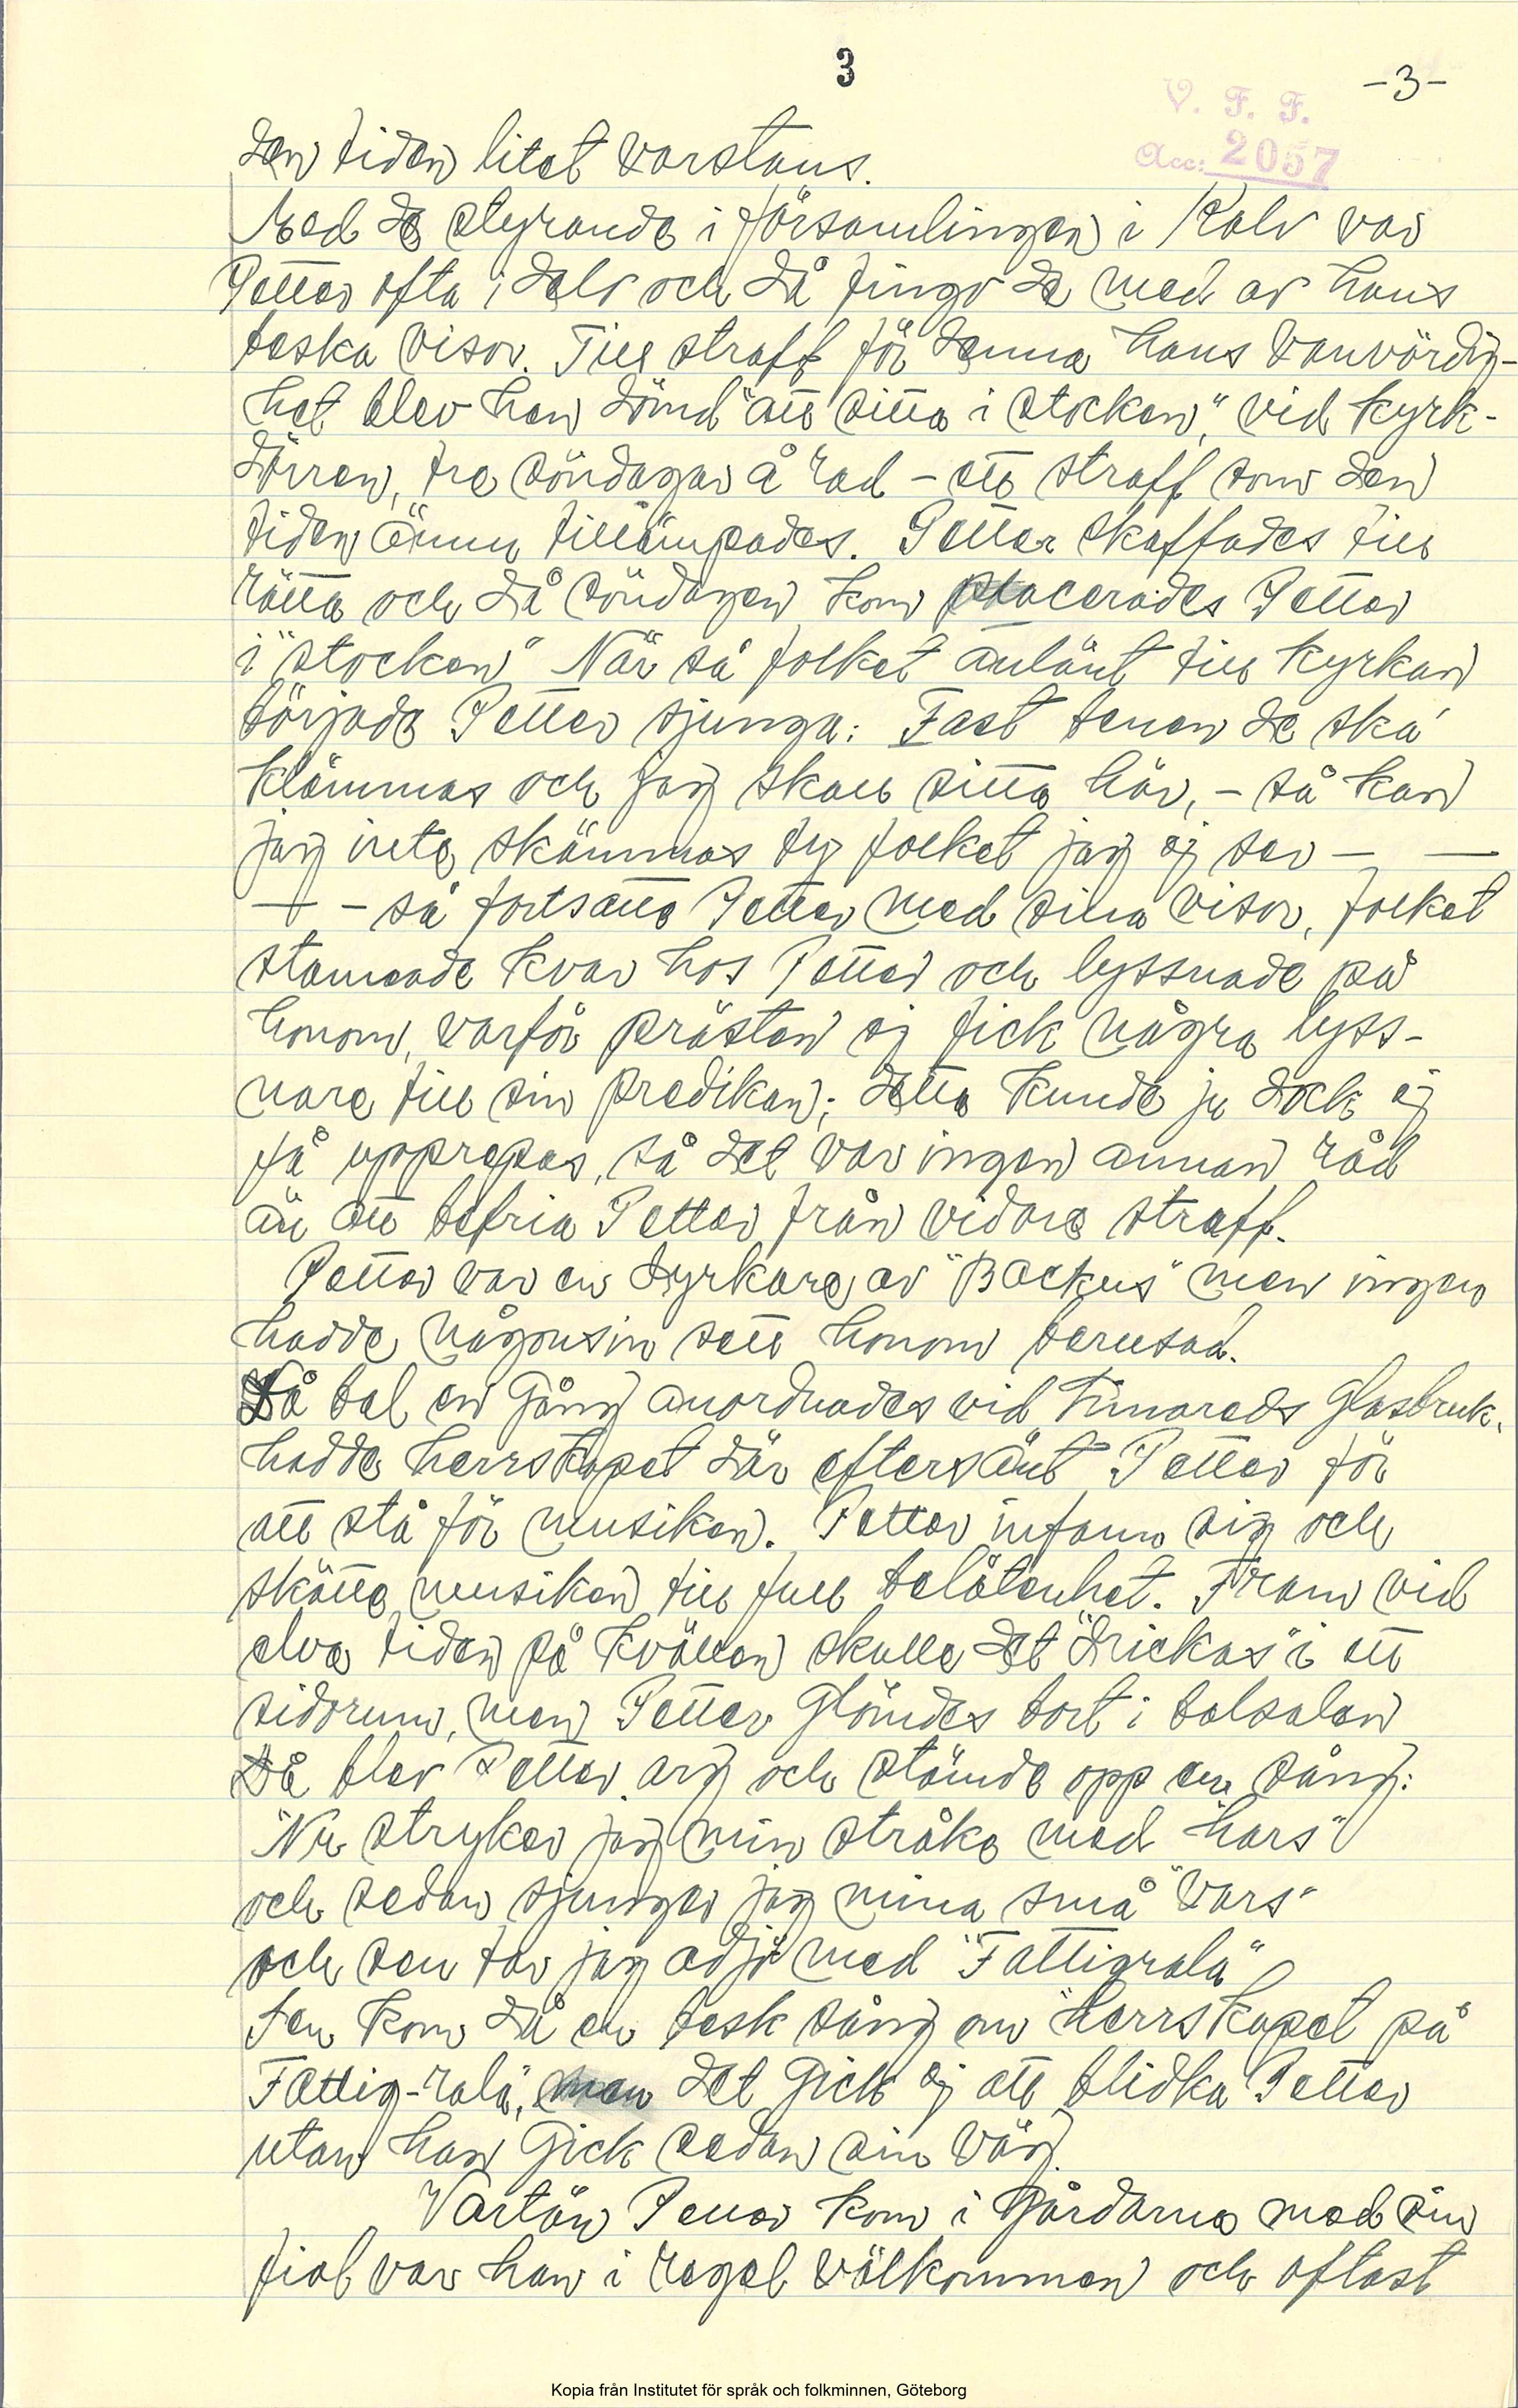 3
-3-
V. F. F.
Acc: 2057
den tiden litet varstans.
Med de styrande i församlingen i Kalv var
Petter ofta i delv och då fingo de med av hans
beska visor. Till straff för denna hans vanvördig-
het blev han dömd "att sitta i stocken", vid kyrk-
dörren, tre söndagar å rad - ett straff som den
tiden ännu tillämpades. Petter skaffades till
rätta och då söndagen kom placerades Petter
i "stocken" När så folket anlänt till kyrkan
började Petter sjunga: Fast benen de ska'
klämmas och jag skall sitta här, - så kan
jag inte skämmas ty folket jag ej ser — —
— - så fortsatte Petter med sina visor, folket
stannade kvar hos Petter och lyssnade på
honom, varför prästen ej fick några lyss-
nare till sin predikan; detta kunde ju dock ej
få upprepas, så det var ingen annan råd
än att befria Petter från vidare straff.
Petter var en dyrkare av "Backus" men ingen
hade någonsin sett honom berusad.
Då bal en gång anordnades vid Limmareds Glasbruk.
hadde herrskapet där eftersänt Petter för
att stå för musiken. Petter infann sig och
skötte musiken till full belåtenhet. Fram vid
elva tiden på kvällen skulle det "drickas" i ett
sidorum, men Petter glömdes bort i balsalen
Då blev Petter arg och stämde opp en sång:
"Nu stryker jag min stråke med "hars"
och sedan sjunger jag mina små "vars"
och sen tar jag adjö med "Fattigrala"
Sen kom då en besk sång om "herrskapet på
Fattig-rala", men det gick ej att blidka Petter
utan han gick sedan sin väg.
Vartän Petter kom i gårdarna med sin
fiol var han i regel välkommen och oftast
Kopia från Institutet för språk och folkminnen, Göteborg